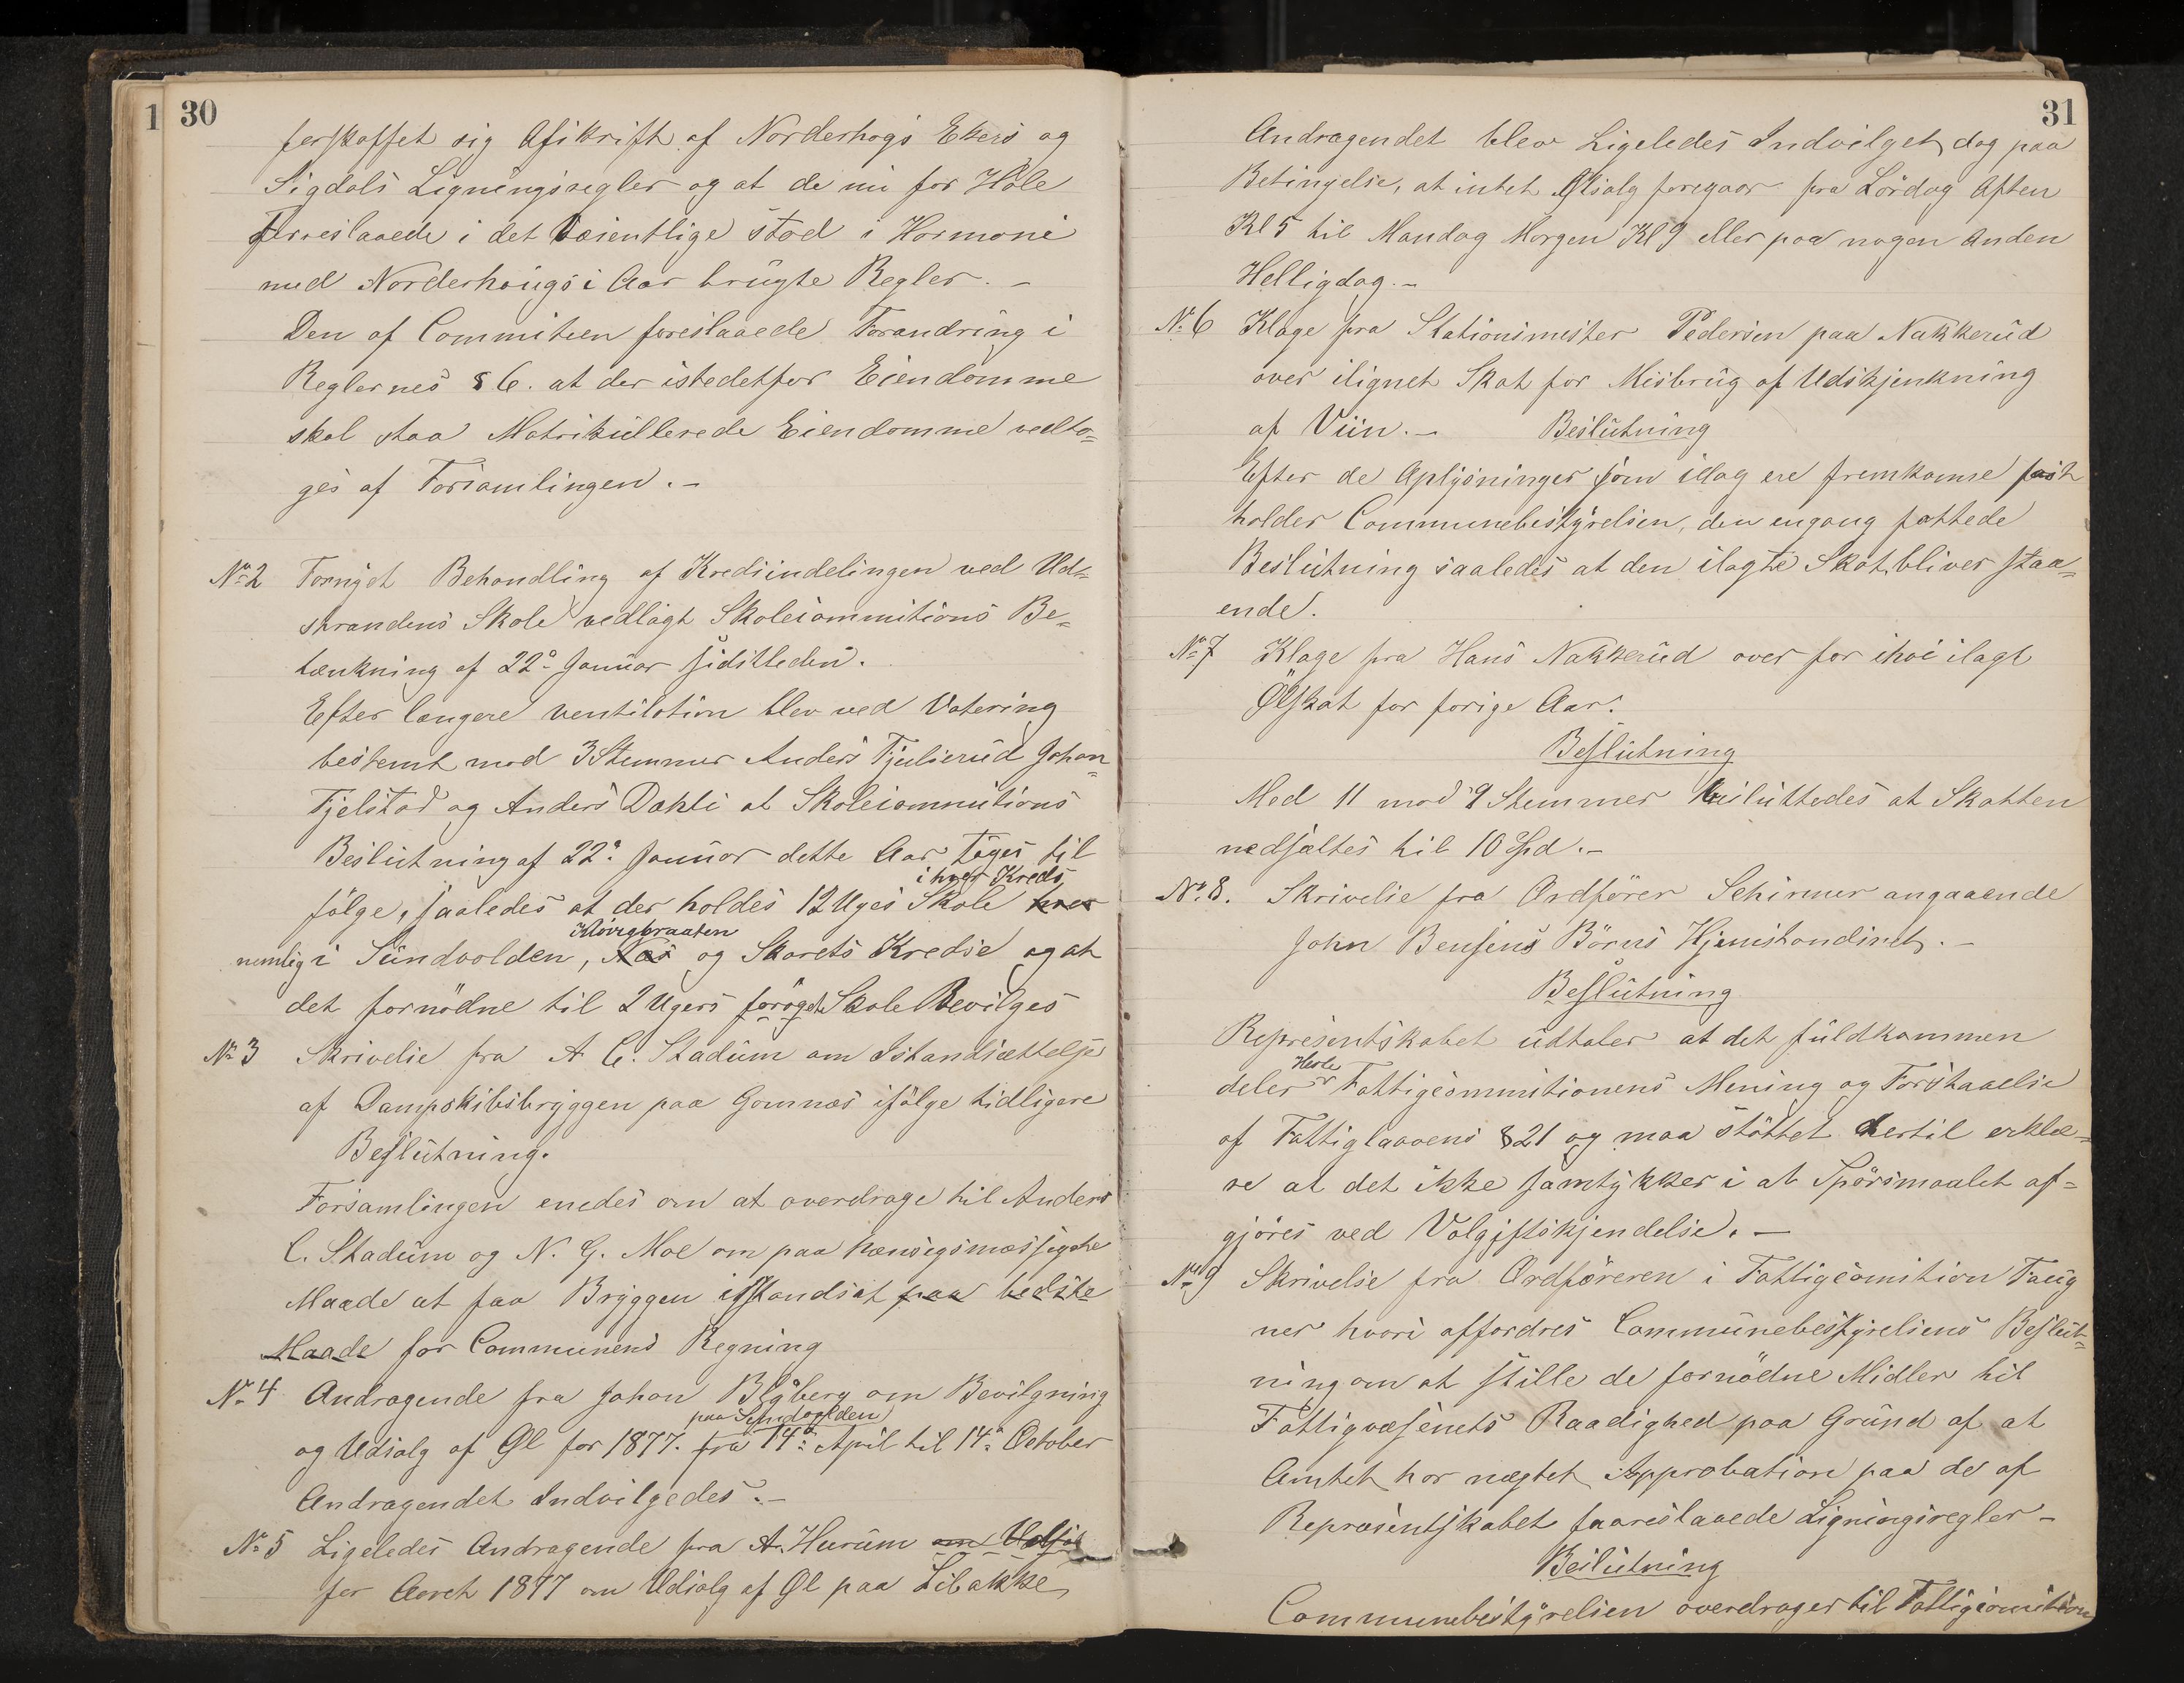 1 30
forskaffet sig Afskrift af Norderhogs Ekers og
Sigdals Ligningsregler og at de nu for Hole
Forreslaaede i det Væsentlige stod i Harmoni
med Norderhougs i Aar brugte Regler. –
Den af Commiteen foreslaaede Forandring i
Reglernes § 6. at der istedetfor Eiendomme
skal staa Matrikullerede Eiendomme vedto=
ges af Forsamlingen. –
No 2 Fornyet Behandling af Kredsindelingen ved Ud=
strandens Skole vedlagt Skolecommitions Be=
tænkning af 22de Januar sidstleden.
Efter længere ventilation blev ved Votering
bestemt mod 3 Stemmer Anders Fjulsrud Johan
Fjelstad og Anders Dæhli at Skolecommitions
Beslutning af 22de Januar dette Aar tages til
i hver Kreds
følge, saaledes at der holdes 12 Uges Skole hver
Kløvigbraaten
nemlig i Sundvolden, Næs og Skarets Kredse og at
det fornødne til 2 Ugers forøget Skole Bevilges
No 3 Skrivelse fra A. C. Stadum om Istandsættelse
af Dampskibsbryggen paa Gomnæs ifølge tidligere
Beslutning.
Forsamlingen enedes om at overdrage til Anders
C. Stadum og N. G. Moe om paa hænsigsmæssigste
Maade at faa Bryggen istandsat paa bedste
Maade for Communens Regning
No 4 Andragende fra Johan Blyberg om Bevilgning
paa Sundvolden
og Udsalg af Øl for 1877. fra 14de April til 14de October
Andragendet Indvilgedes. –
No 5 Ligeledes Andragende fra A. Hurum om Udsal
for Aaret 1877 om Udsalg af Øl paa Libakke
31
Andragendet blev Ligeledes Indvilget, dog paa
Betingelse, at intet Ølsalg foregaar fra Lørdag Aften
Kl 5 til Mandag Morgen Kl 9 eller paa nogen Anden
Helligdag. –
No 6 Klage fra Stationsmester Pedersen paa Nakkerud
over ilignet Skat for Misbrug af Udskjenkning
af Viin. – Beslutning
Efter de Oplysninger som idag ere fremkomne fast
holder Communebestyrelsen, den engang fattede
Beslutning saaledes at den ilagte Skat bliver staa=
ende.
No 7 Klage fra Hans Nakkerud over for høi ilagt
Ølskat for forige Aar.
Beslutning
Med 11 mod 9 Stemmer besluttedes at Skatten
nedsættes til 10 Spd. –
No 8. Skrivelse fra Ordfører Schirmer angaaende
John Bensens Børns Hjemstandsret. –
Beslutning
Represintskabet udtaler at det fuldkommen
Hole
deler Fattigcommitionens Mening og Forstaaelse
af Fattiglaavens § 21 og maa støttet hertil erklæ=
re at det ikke samtykker i at Spørsmaalet af=
gjøres ved Volgiftskjendelse. –
No 9 Skrivelse fra Ordføreren i Fattigcomition Faug
ner hvori affordres Communebestyrelsens Beslut=
ning om at stille de fornødne Midler til
Fattigvæsenets Raadighed paa Grund af at
Amtet har nægtet Approbation paa de af
Repræsintskabet faareslaaede Ligningsregler –
Beslutning
Communebestyrelsen overdrager til Fattigcomition